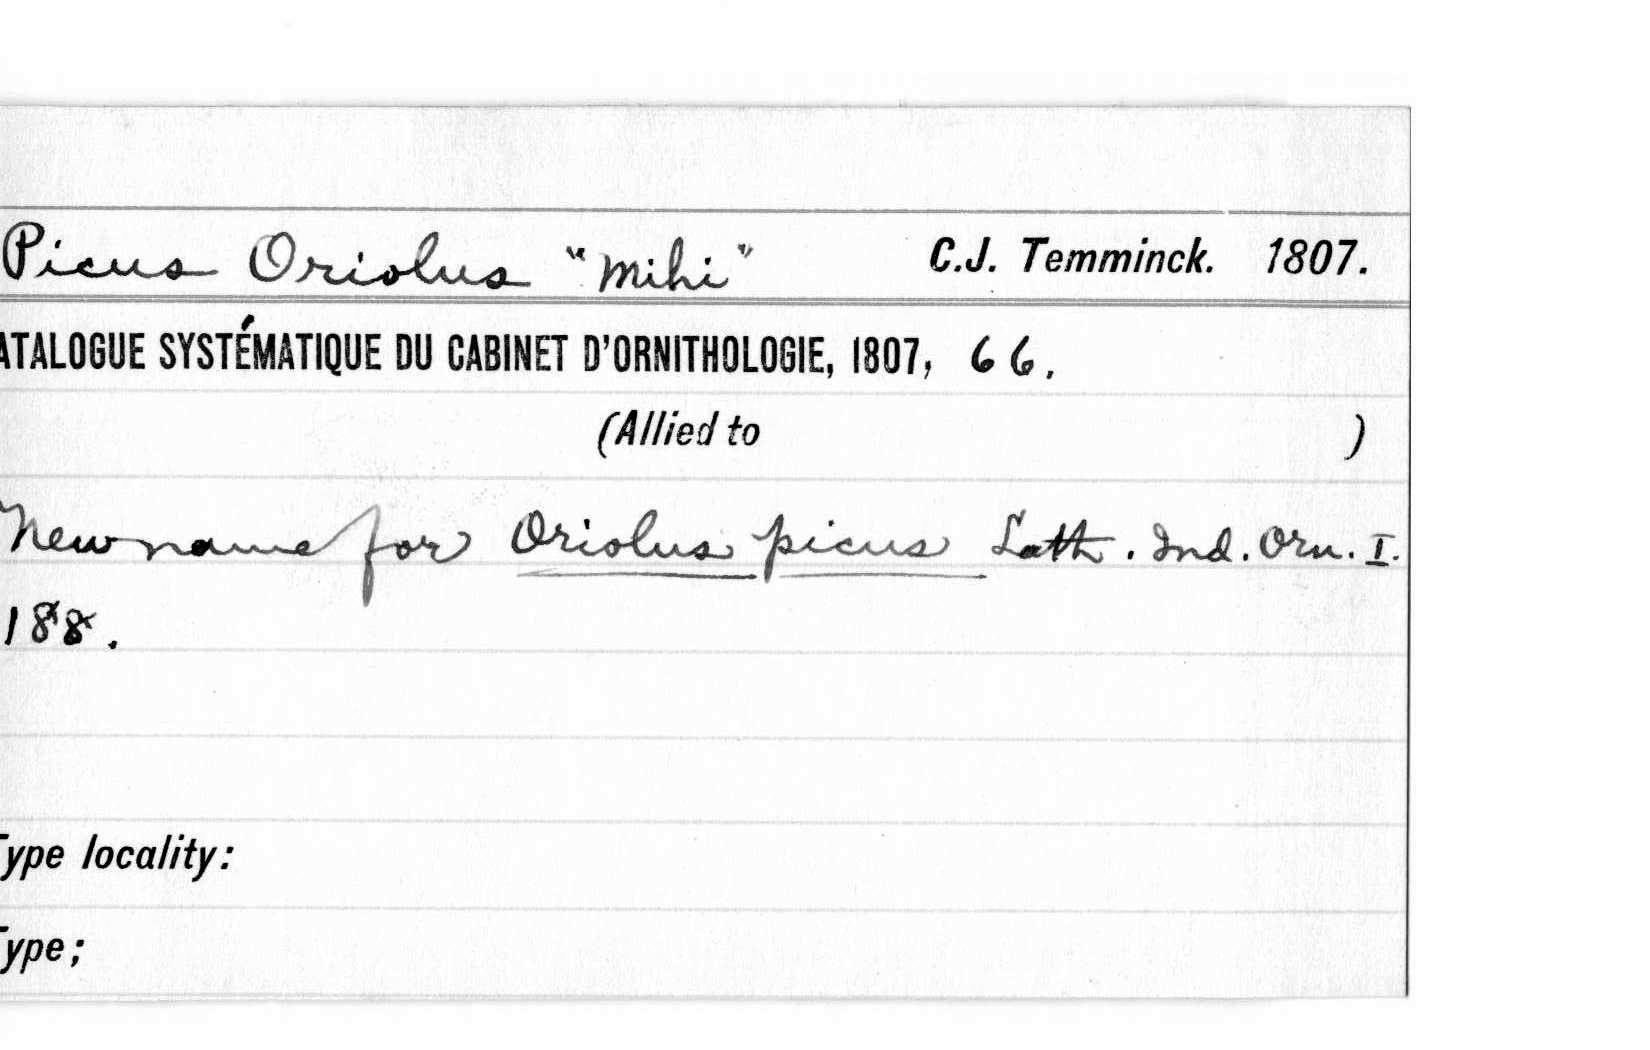 Picus Oriolus "Mihi" C.J. Temminck. 1807.
ATALOGUE SYSTÉMATIQUE DU CABINET D'ORNITHOLOGIE, 1807, 66.
(Allied to )
New name for Oriolus picus Lath. Ind. Orn. I.
188.
Type locality:
Type;